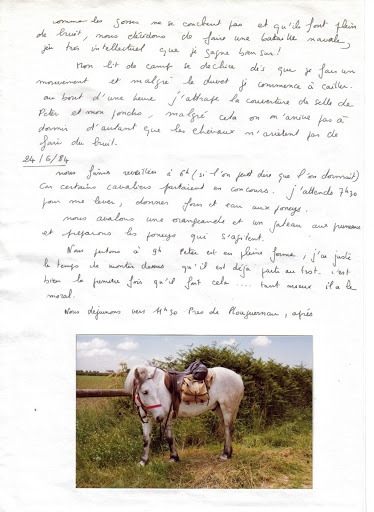 comme les gosses ne se couchent pas et qu'ils font plein
de bruit, nous décidons de faire une bataille navale,
jeu très intellectuel que je gagne bien sur!
Mon lit de camp se déclire dès que je fais un
mouvement et malgré le duvet je commence à cailler.
au bout d'une heure j'attrape la couverture de selle de
Peter et mon poncho, malgré cela on n'arrive pas à
dormir d'autant que les chevaux n'arretent pas de
faire du bruit.
24/6/84
nous fûmes réveillées à 6h (si l'on peut dire que l'on dormait)
car certains cavaliers partaient en concours. j'attends 7h30
pour me lever, donner foin et eau aux poneys.
nous avalons une orangeade et un gateau aux pruneaux
et préparons les poneys qui s'agitent.
Nous partons à 9h Peter est en pleine forme, j'ai juste
le temps de monter dessus qu'il est déjà parti au trot. c'est
bien la première fois qu'il fait cela .... tant mieux il a le
moral.
Nous déjeunons vers 11h30 Près de Plouguerneau, après